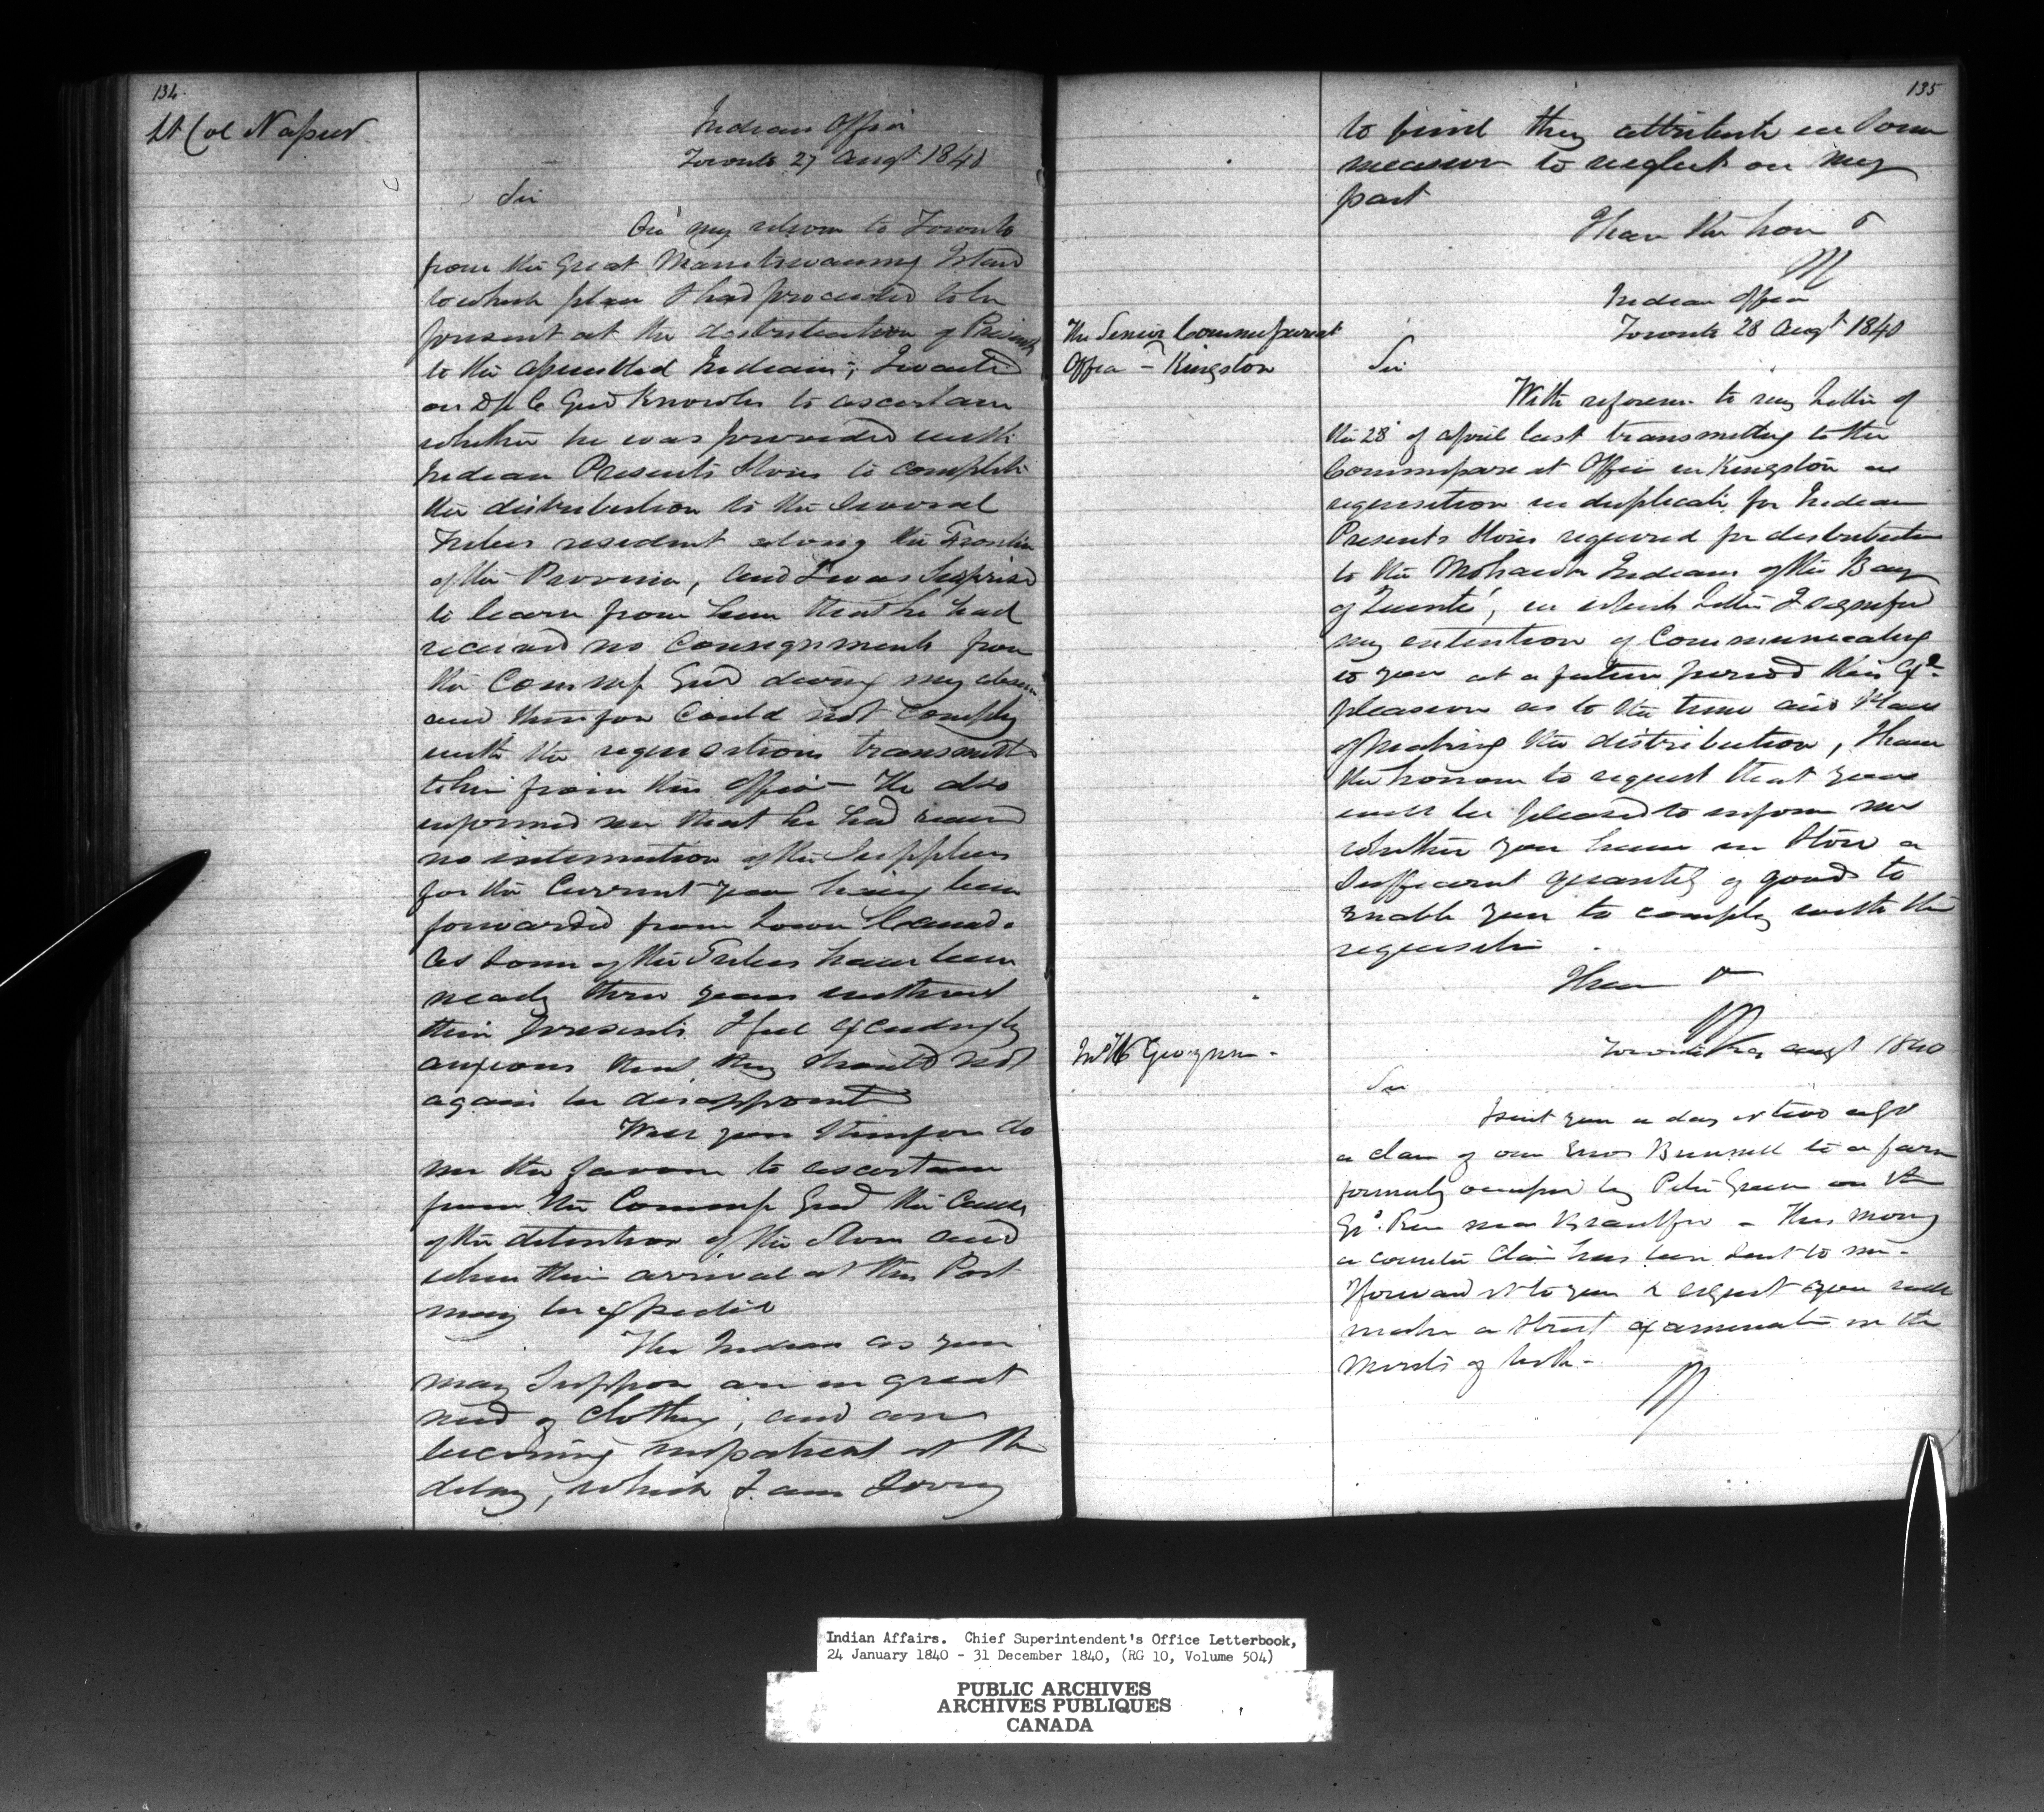 134.
Lt Col Napier
Indian Office
Toronto 27 Augt 1840
Sir
On my return to Toronto
from the Great Manitowauning Island
to which place I had proceeded to be
present at the distribution of Presents
to the assembled Indians, I waited
on Dy C Genl Knowles to ascertain
whether he was provided with
Indian Presents Stores to complete
the distribution to the several
Tribes resident along the Frontier
of the Province, and I was surprised
to learn from him that he had
received no consignments from
the Commissy Genl during my absence
and therefore could not comply
with the requisitions transmitted
to him from this Office - He also
informed me that he had received
no intimation of the Supplies
for the Current year having been
forwarded from Lower Canada.
As some of the Tribes have been
nearly three years without
their presents I feel exceedingly
anxious that they should not
again be disappointed
Will you therefore do
me the favour to ascertain
from the Commissy Genl the Cause
of the detention of the Stores and
when their arrival at this Post
may be expected
The Indians as you
may suppose are in great
need of clothing, and are
becoming impatient at the
delay, which I am sorry
135
to find they attribute in some
measure to neglect on my
part
I have the honr &
Indian Office
Toronto 28 Augt 1840
The Senior Commissariat
Officer - Kingston
Sir
With reference to my Letter of
the 28 of April last transmitting to the
Commissariat Office in Kingston a
requisition in duplicate for Indian
Presents Stores required for distribution
to the Mohawk Indians of the Bay
of Quinté, in which Letter I signified
my intention of Communicating
to you at a future period His Exy
pleasure as to the time and Place
of making the distribution, I have
the honour to request that you
will be pleased to inform me
whether you have in Store a
sufficient quantity of goods to
enable you to comply with the
requisition.
I have &
Toronto augt 1840
Sir
I sent you a day or two ago
a claim of one Enos Bunnell to a farm
formerly occupied by Peter Green on the
Gd. River near Brantford - This morng
a counter Claim has been sent to me -
I forward it to you & request you will
make a strict examination in the
merits of both -
Indian Affairs. Chief Superintendent's Office Letterbook,
24 January 1840 - 31 December 1840, (RG 10, Volume 504)
PUBLIC ARCHIVES
ARCHIVES PUBLIQUES
CANADA